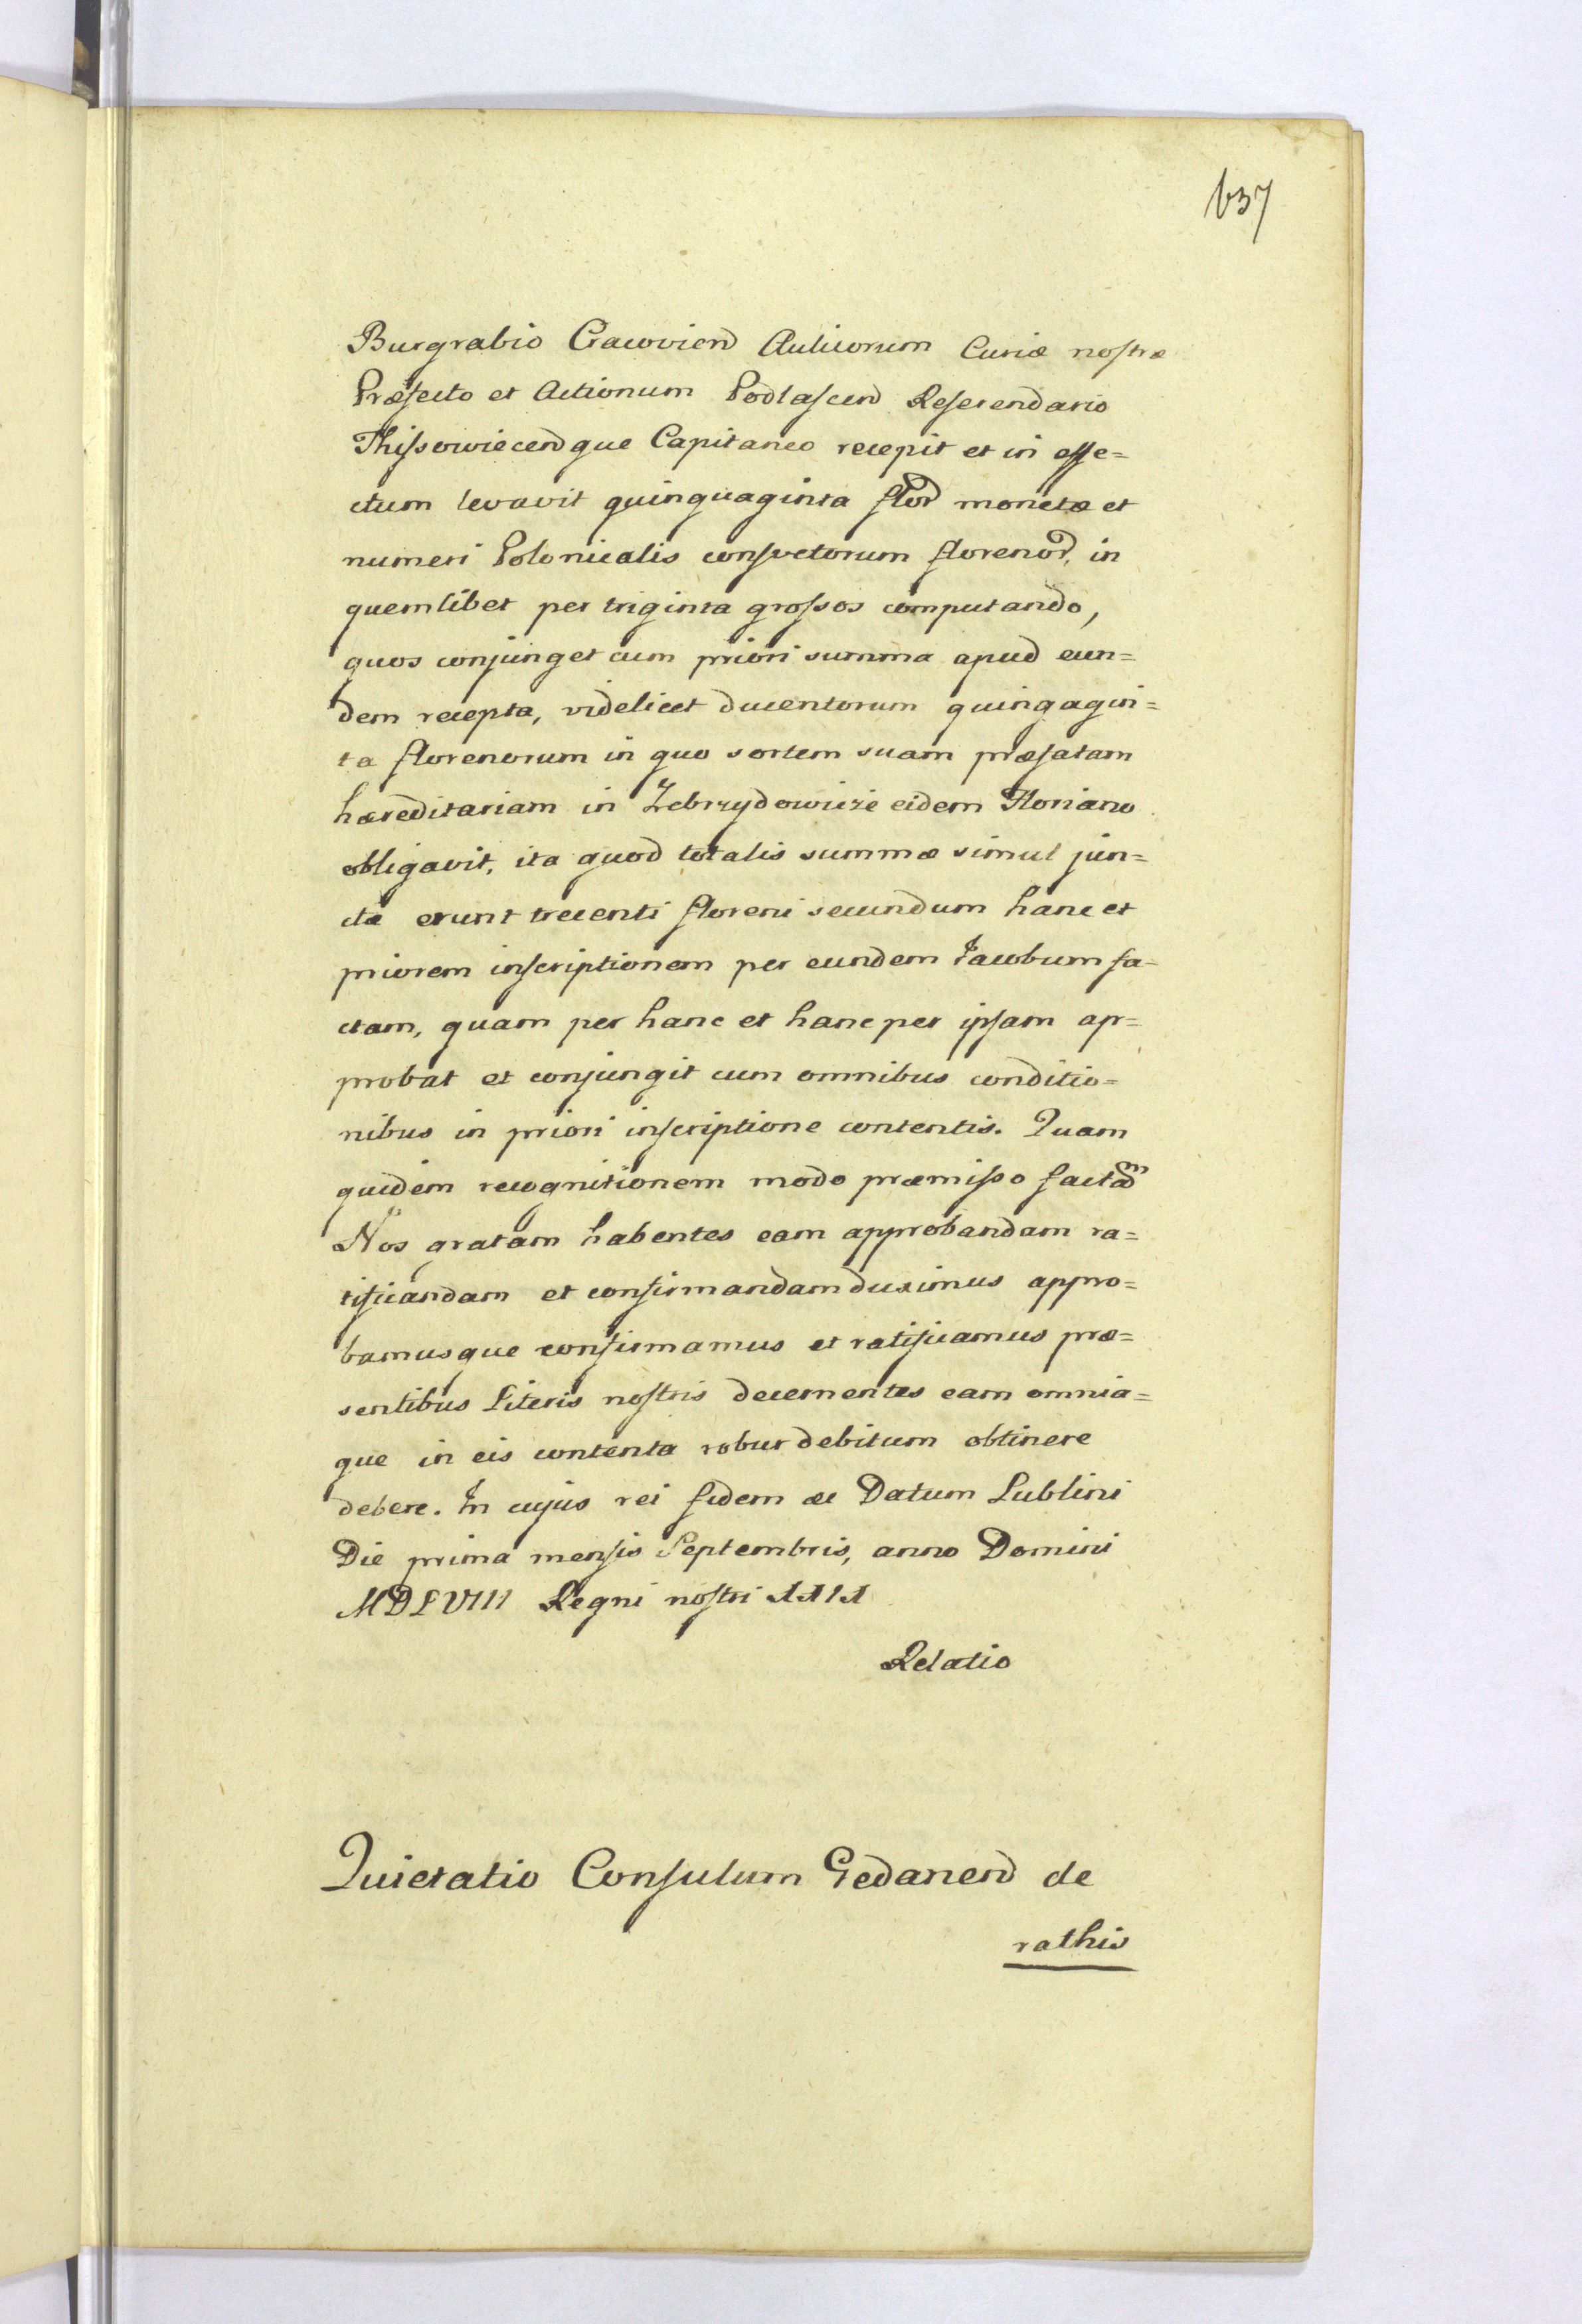 637
Burgrabio Cracovien Aulicorum Curiæ nostræ
Præfecto et Actionum Podlascen Referendario
Thissowiecenque Capitaneo recepit et in effe=
ctum levavit quinquaginta flor monetæ et
numeri Polonicalis consvetorum florenor, in
quemlibet per triginta grossos computando,
quos conjunget cum priori summa apud eun=
dem recepta, videlicet ducentorum quinqagin=
ta florenorum in quo sortem suam præfatam
hæreditariam in Zebrzydowicze eidem Floriano
obligavit, ita quod totalis summæ simul jun=
ctæ erunt trecenti floreni secundum hanc et
priorem inscriptionem per eundem Jacobum fa=
ctam, quam per hanc et hanc per ipsam ap=
probat et conjungit cum omnibus conditio=
nibus in priori inscriptione contentis. Quam
quidem recognitionem modo præmisso factam
Nos gratam habentes eam approbandam ra=
tificandam et confirmandam duximus appro=
bamusque confirmamus et ratificamus præ=
sentibus Literis nostris decernentes eam omnia=
que in eis contenta robur debitum obtinere
debere. In cujus rei fidem æc Datum Lublini
Die prima mensis Septembris, anno Domini
MDLVIII Regni nostri XXIX
Relatio
Quietatio Consulum Gedanen de
rathis